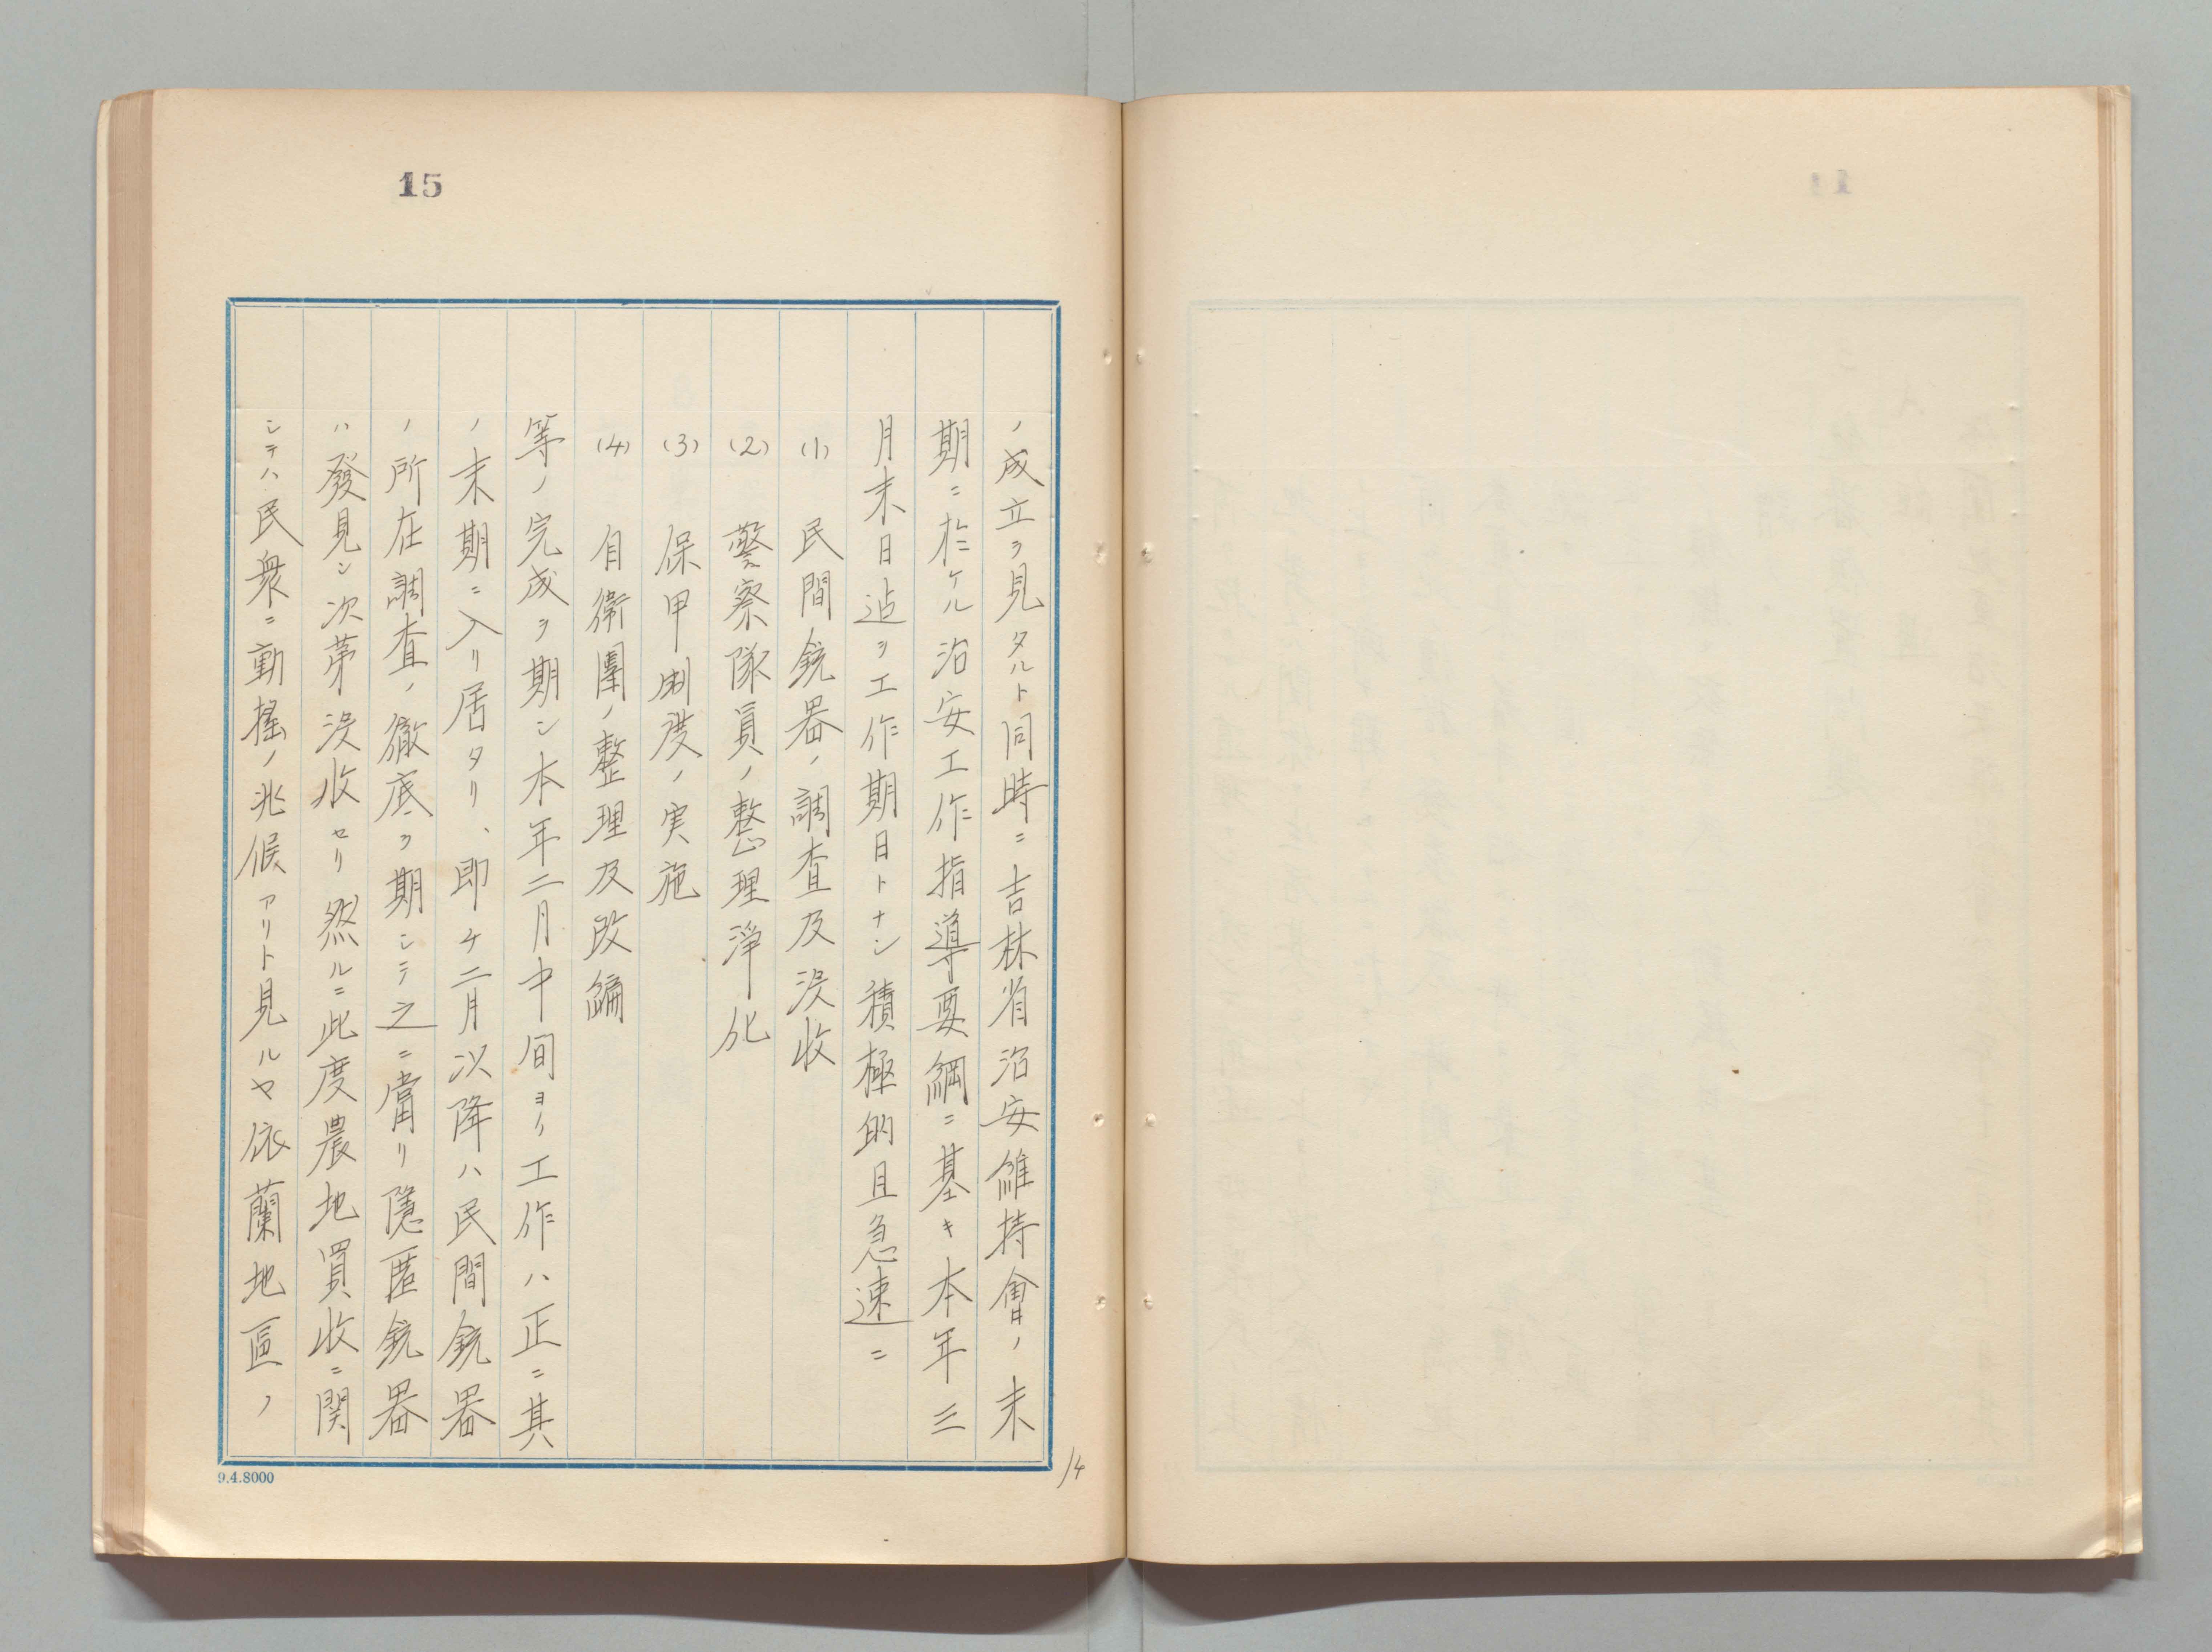 15
ノ成立ヲ見タルト同時ニ吉林省治安維持會ノ末
期ニ於ケル治安工作指導要綱ニ基キ本年三
月末日迠ヲ工作期日トナシ積極的且急速ニ
(1) 民間銃器ノ調査及没收
(2) 警察隊員ノ整理淨化
(3) 保甲制度ノ実施
(4) 自衛團ノ整理及改編
等ノ完成ヲ期シ本年二月中旬ヨリ工作ハ正ニ其
ノ末期ニ入リ居タリ、即チ二月以降ハ民間銃器
ノ所在調査ノ徹底ヲ期シテ之ニ當リ隱匿銃器
ハ發見シ次第没收セリ然ルニ此度農地買收ニ関
シテハ民衆ニ動搖ノ兆候アリト見ルヤ依蘭地區ノ
9.4.8000
14